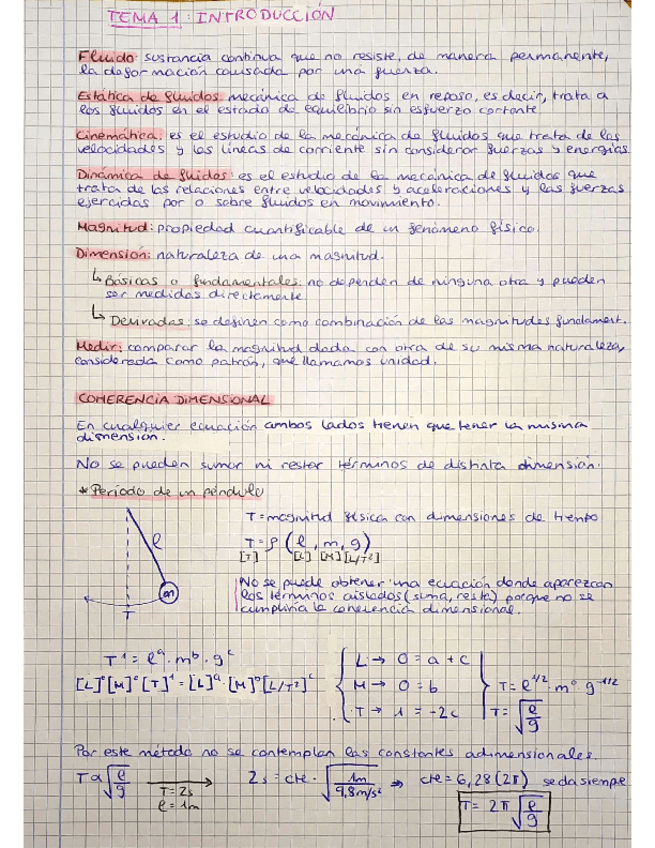 TEMA 1: INTRODUCCIÓN
Fluido: sustancia continua que no resiste, de manera permanente,
la deformación causada por una fuerza.
Estática de fluidos: mecánica de fluidos en reposo, es decir, trata a
los fluidos en el estado de equilibrio sin esfuerzo cortante
Cinemática: es el estudio de la mecánica de fluidos que trata de las
velocidades y las líneas de corriente sin considerar fuerzas y energías
Dinámica de fluidos: es el estudio de la mecánica de fluidos que
trata de las relaciones entre velocidades y aceleraciones y las fuerzas
ejercidas por o sobre fluidos en movimiento.
Magnitud: propiedad cuantificable de un fenómeno físico.
Dimensión: naturaleza de una magnitud.
↳ Básicas o fundamentales: no dependen de ninguna otra y pueden
ser medidas directamente
↳ Derivadas: se definen como combinación de las magnitudes fundament.
Medir: comparar la magnitud dada con otra de su misma naturaleza,
considerada como patrón, que llamamos unidad.
COHERENCIA DIMENSIONAL
En cualquier ecuación ambos lados tienen que tener la misma
dimensión.
No se pueden sumar ni restar términos de distinta dimensión.
* Período de un péndulo
T = magnitud física con dimensiones de tiempo
l
T = f (l, m, g)
[T] [L] [M] [L/T²]
m
T
No se puede obtener una ecuación donde aparezcan
los términos aislados (suma, resta) porque no se
cumpliría la coherencia dimensional.
T¹ = lᵃ · mᵇ · gᶜ
[L]⁰[M]⁰[T]¹ = [L]ᵃ · [M]ᵇ [L/T²]ᶜ
L → 0 = a + c
M → 0 = b
T → 1 = -2c
T = l^1/2 · m⁰ · g^-1/2
T = √(l/g)
Por este método no se contemplan las constantes adimensionales.
T α √(l/g) → T = 2s l = 1m 2s = cte · √(1m/9,8m/s²) ⇒ cte = 6,28 (2π) se da siempre
T = 2π √(l/g)